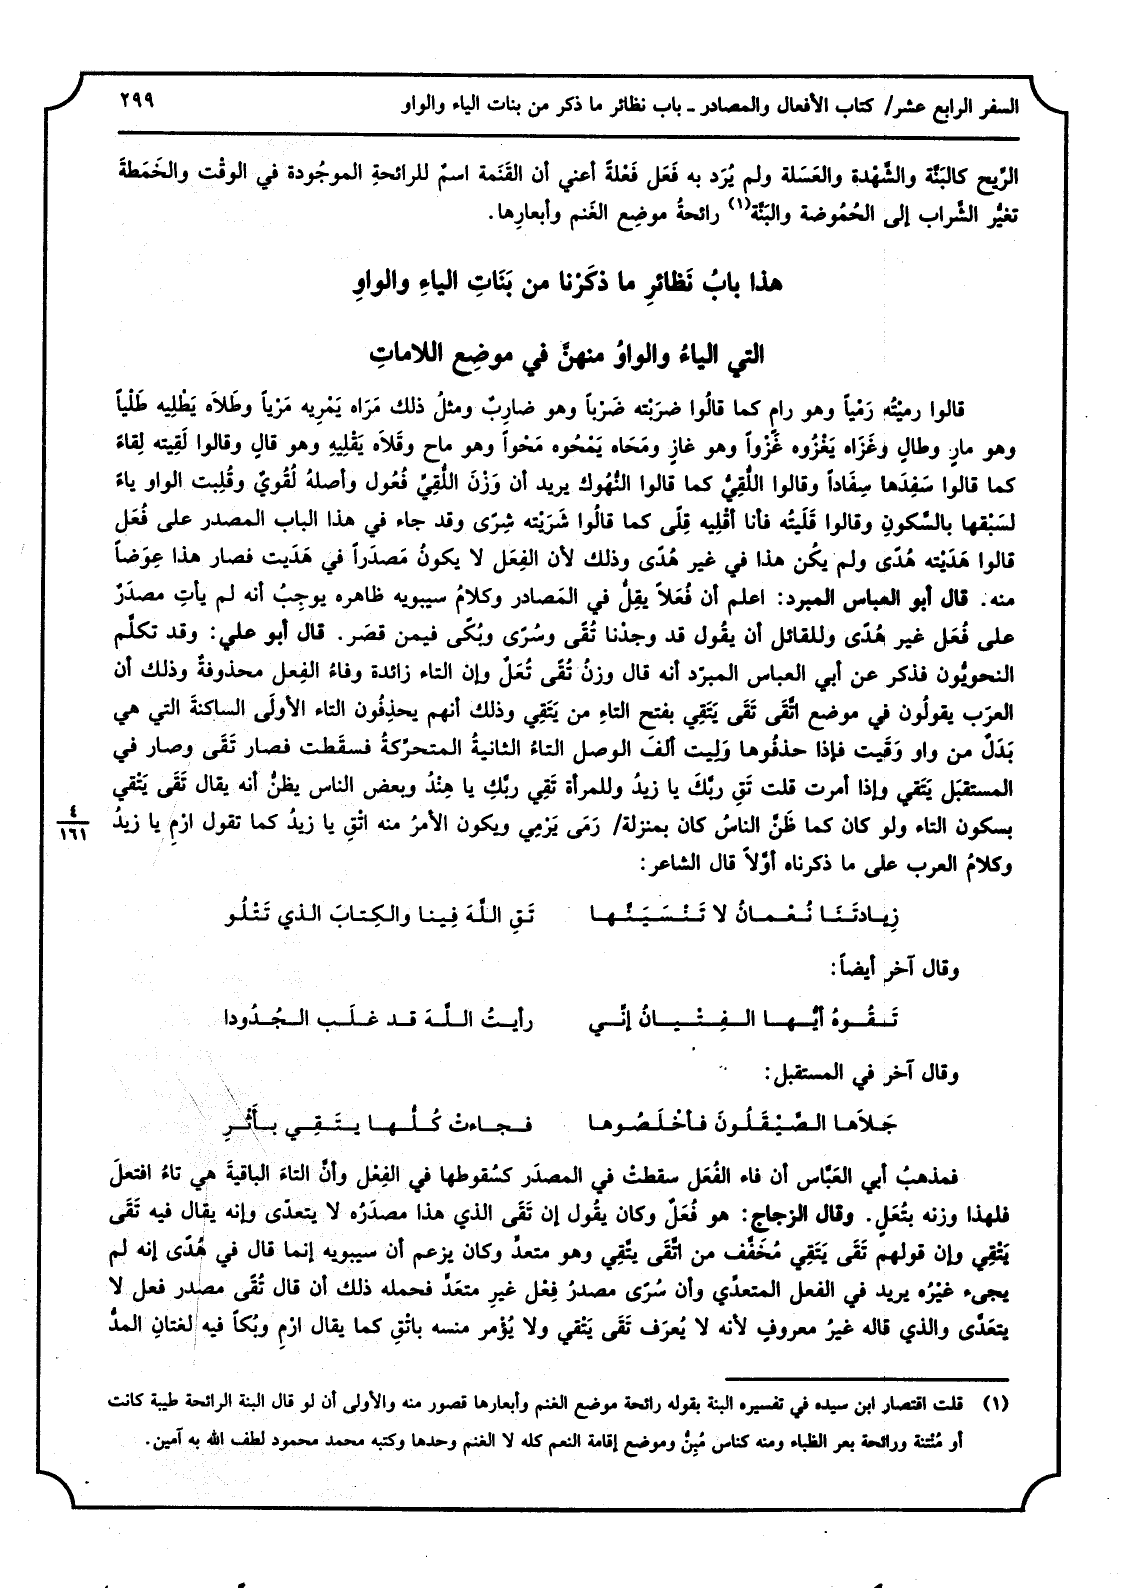 السفر الرابع عشر/ كتاب الأفعال والمصادر ـ باب نظائر ما ذكر من بنات الياء والواو ٢٩٩
الرِّيح كالبَنَّة والشَّهْدة والعَسَلة ولم يُرَد به فَعَل فَعْلةً أعني أن القَنَمة اسمٌ للرائحةِ الموجُودة في الوقْت والخَمَطةَ
تغيُّر الشَّراب إلى الحُمُوضة والبَنَّة(١) رائحةُ موضِع الغَنم وأبعارِها.
هذا بابُ نَظائرِ ما ذكَرْنا من بَنَاتِ الياءِ والواوِ
التي الياءُ والواوُ منهنَّ في موضِع اللاماتِ
قالوا رميْتُه رَمْياً وهو رامٍ كما قالُوا ضرَبْته ضَرْباً وهو ضارِبٌ ومثلُ ذلك مَرَاه يَمْرِيه مَرْياً وطَلاَه يَطْلِيه طَلْياً
وهو مارٍ وطالٍ وغَزَاه يَغْزُوه غَزْواً وهو غازٍ ومَحَاه يَمْحُوه مَحْواً وهو ماحٍ وقَلاَه يَقْلِيهِ وهو قالٍ وقالوا لَقِيته لِقاءَ
كما قالوا سَفِدَها سِفَاداً وقالوا اللُّقِيُّ كما قالوا النُّهُوك يريد أن وَزْنَ اللُّقِيِّ فُعُول وأصلهُ لُقُويٌ وقُلِبت الواو ياءً
لسَبْقها بالسُّكونِ وقالوا قَلَيتُه فأنا أقْلِيه قِلًى كما قالُوا شَرَيْته شِرًى وقد جاء في هذا الباب المصدر على فُعَل
قالوا هَدَيْته هُدًى ولم يكُن هذا في غير هُدًى وذلك لأن الفِعَل لا يكونُ مَصدَراً في هَدَيت فصار هذا عِوَضاً
منه. قال أبو العباس المبرد: اعلم أن فُعَلاً يقِلُّ في المَصادر وكلامُ سيبويه ظاهره يوجِبُ أنه لم يأتِ مصدَرٌ
على فُعَل غير هُدًى وللقائل أن يقُول قد وجدْنا تُقَى وسُرًى وبُكًى فيمن قصَر. قال أبو علي: وقد تكلَّم
النحويُّون فذكر عن أبي العباس المبرّد أنه قال وزنُ تُقَى تُعَلٌ وإن التاء زائدة وفاءُ الفِعل محذوفةٌ وذلك أن
العرَب يقولُون في موضع اتَّقَى تَقَى يَتَقِي بفتح التاءِ من يَتَقِي وذلك أنهم يحذِفُون التاء الأولَى الساكنةَ التي هي
بَدَلٌ من واو وَقَيت فإذا حذفُوها وَلِيت ألفَ الوصل التاءُ الثانيةُ المتحرّكةُ فسقَطت فصار تَقَى وصار في
المستقبَل يَتَقي وإذا أمرت قلت تَقِ ربَّكَ يا زيدُ وللمرأة تَقِي ربَّكِ يا هِنْدُ وبعض الناس يظنُّ أنه يقال تَقَى يَتْقي
بسكون التاء ولو كان كما ظَنَّ الناسُ كان بمنزلة/ رَمَى يَرْمِي ويكون الأمرُ منه اتْقِ يا زيدُ كما تقول ارْمِ يا زيدُ
٤
١٦١
وكلامُ العرب على ما ذكرناه أوَّلاً قال الشاعر:
زِيـادتَـنَـا نُـعْـمـانُ لا تَـنْـسَـيَـنَّـهـا تَـقِ اللَّهَ فِـيـنـا والـكِـتـابَ الـذي تَـتْـلُـو
وقال آخر أيضاً:
تَـقُـوهُ أيُّـهـا الـفِـتْـيـانُ إنَّـي رأيـتُ الـلَّـهَ قـد غـلَـب الـجُـدُودا
وقال آخر في المستقبل:
جَـلاَهـا الـصَّـيْـقَـلُـونَ فـأخْـلَـصُـوهـا فـجـاءتْ كُـلُّـهـا يـتَـقِـي بـأَثْـرِ
فمذهبُ أبي العَبَّاس أن فاء الفُعَل سقطتْ في المصدَر كسُقوطها في الفِعْل وأنَّ التاءَ الباقيةَ هي تاءُ افتعلَ
فلهذا وزنه بتُعَلٍ. وقال الزجاج: هو فُعَلٌ وكان يقُول إن تَقَى الذي هذا مصدَرُه لا يتعدّى وإنه يقال فيه تَقَى
يَتْقِي وإن قولهم تَقَى يَتَقِي مُخَفَّف من اتَّقَى يتَّقِي وهو متعدٍّ وكان يزعم أن سيبويه إنما قال في هُدًى إنه لم
يجىء غيْرُه يريد في الفعل المتعدِّي وأن سُرًى مصدرُ فِعْل غيرِ متعَدٍّ فحمله ذلك أن قال تُقًى مصدر فعل لا
يتعَدَّى والذي قاله غيرُ معروفٍ لأنه لا يُعرَف تَقَى يَتْقي ولا يُؤْمر منسه باتْقِ كما يقال ارْمِ وبُكاً فيه لغتانِ المدُّ
(١) قلت اقتصار ابن سيده في تفسيره البنة بقوله رائحة موضع الغنم وأبعارها قصور منه والأولى أن لو قال البنة الرائحة طيبة كانت
أو مُنْتنة ورائحة بعر الظباء ومنه كناس مُبِنٌّ وموضع إقامة النعم كله لا الغنم وحدها وكتبه محمد محمود لطف الله به آمين.